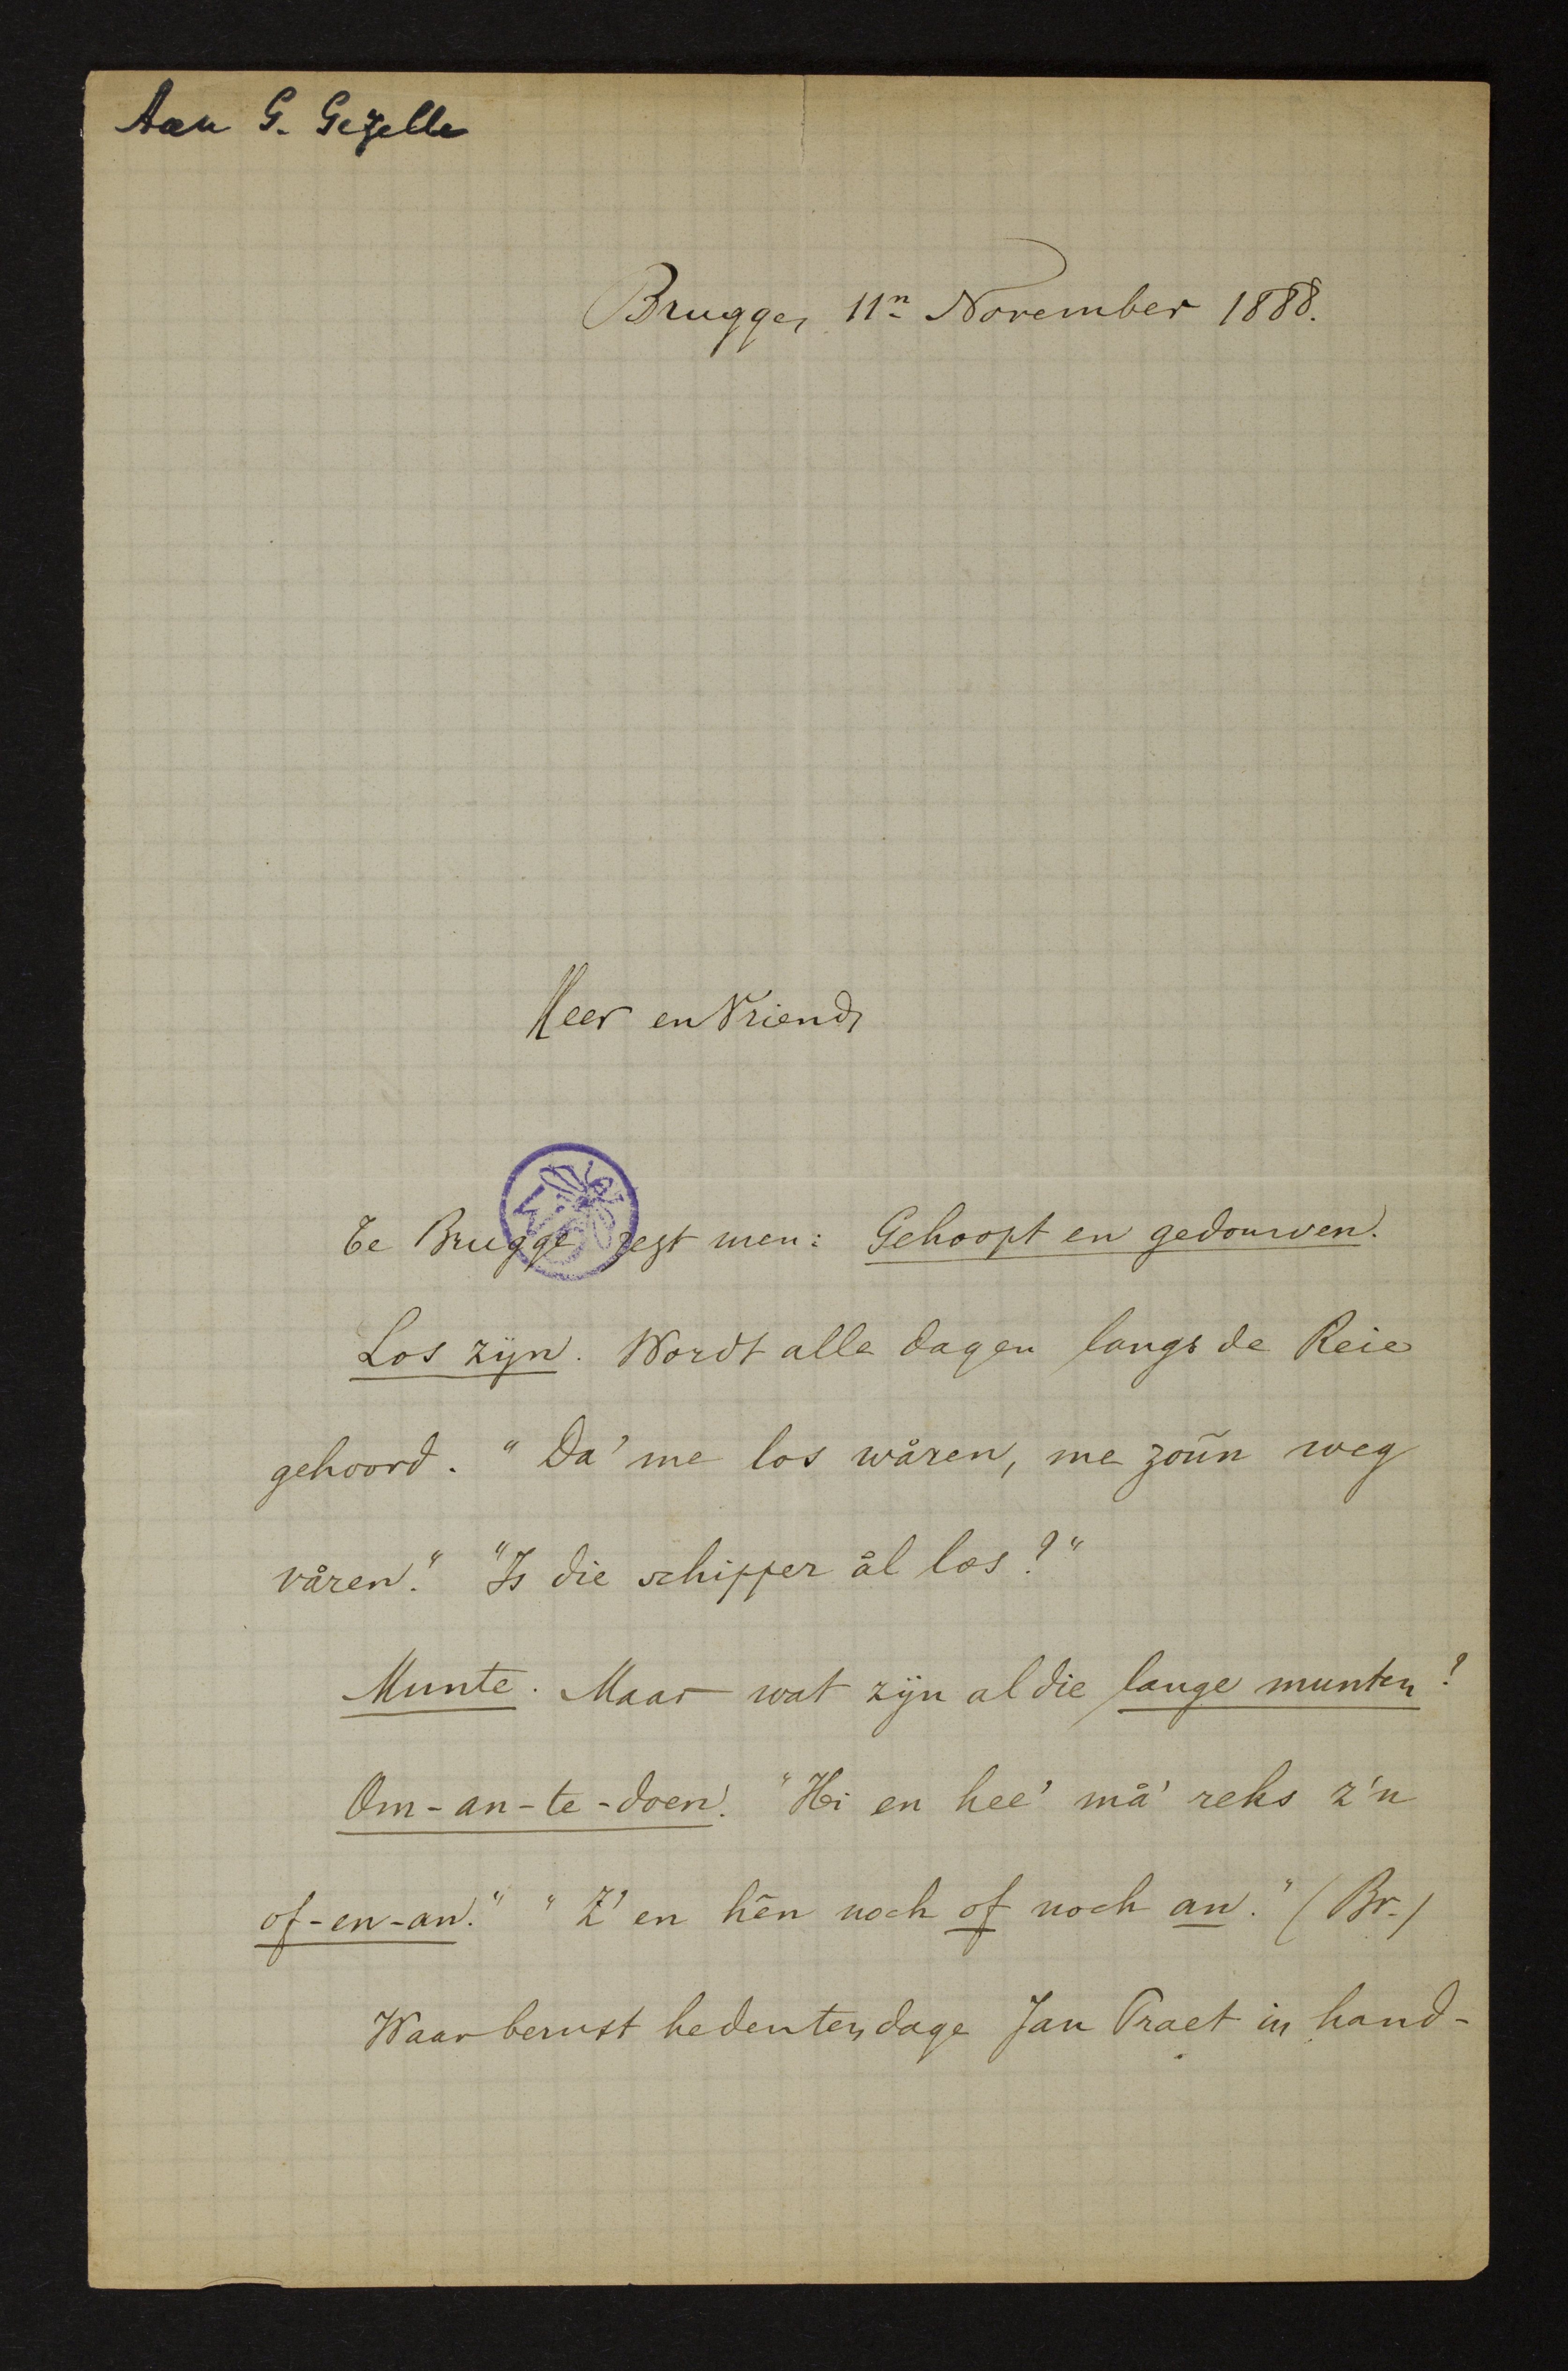 Aan G. Gezelle
Brugge, 11n November 1888.
Heer en Vriend,
Te Brugge zegt men: Gehoopt en gedouwen.
Los zijn. Wordt alle dagen langs de Reie
gehoord. "Da' me los wåren, me zoũn weg
våren." "Is die schipper ål los?"
Munte. Maar wat zijn al die lange munten?
Om-an-te-doen. "Hi en hee' må' reks z'n
of-en-an." "Z' en hên noch of noch an." (Br.)
Waar berust hedentendage Jan Praet in hand-